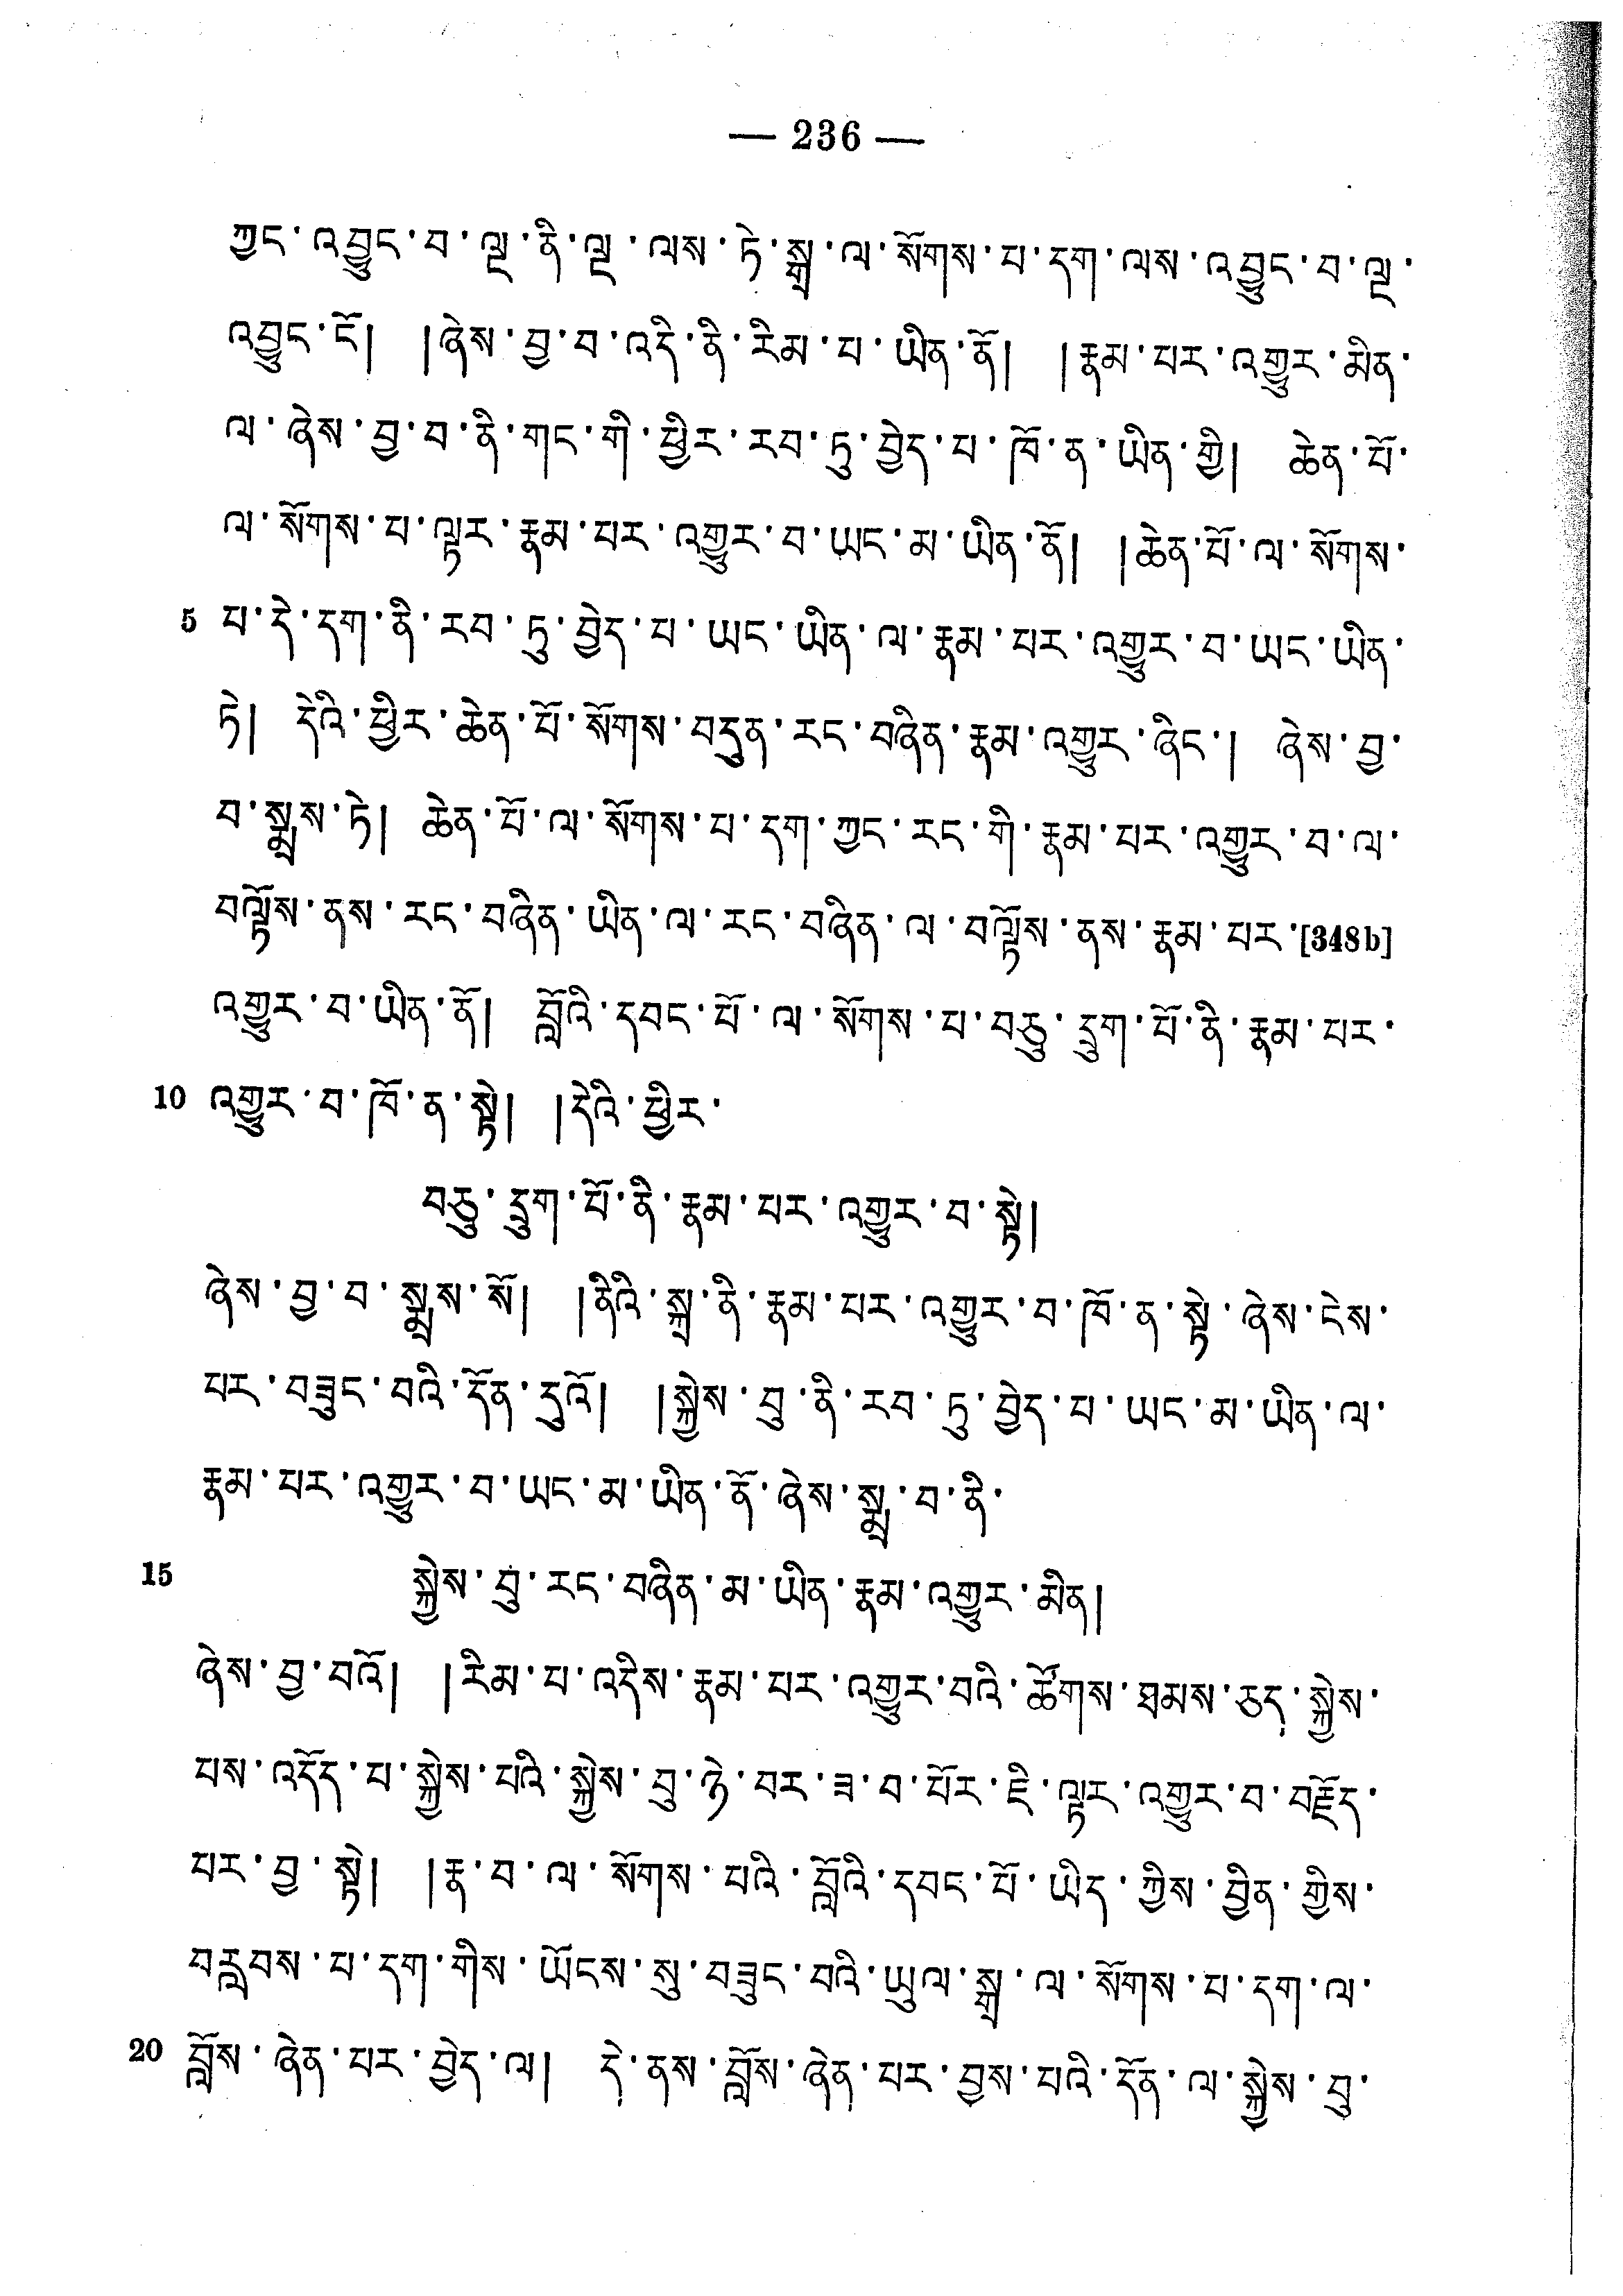 — 236 —
ཀྱང་འབྱུང་བ་ལྔ་ནི་ལྔ་ལས་ཏེ་སྒྲ་ལ་སོགས་པ་དག་ལས་འབྱུང་བ་ལྔ་
འབྱུང་ངོ། །ཞེས་བྱ་བ་འདི་ནི་རིམ་པ་ཡིན་ནོ། །རྣམ་པར་འགྱུར་མིན་
ལ་ཞེས་བྱ་བ་ནི་གང་གི་ཕྱིར་རབ་ཏུ་བྱེད་པ་ཁོ་ན་ཡིན་གྱི། ཆེན་པོ་
ལ་སོགས་པ་ལྟར་རྣམ་པར་འགྱུར་བ་ཡང་མ་ཡིན་ནོ། །ཆེན་པོ་ལ་སོགས་
5 པ་དེ་དག་ནི་རབ་ཏུ་བྱེད་པ་ཡང་ཡིན་ལ་རྣམ་པར་འགྱུར་བ་ཡང་ཡིན་
ཏེ། དེའི་ཕྱིར་ཆེན་པོ་སོགས་བདུན་རང་བཞིན་རྣམ་འགྱུར་ཞིང་། ཞེས་བྱ་
བ་སྨྲས་ཏེ། ཆེན་པོ་ལ་སོགས་པ་དག་ཀྱང་རང་གི་རྣམ་པར་འགྱུར་བ་ལ་
བལྟོས་ནས་རང་བཞིན་ཡིན་ལ་རང་བཞིན་ལ་བལྟོས་ནས་རྣམ་པར་[348b]
འགྱུར་བ་ཡིན་ནོ། བློའི་དབང་པོ་ལ་སོགས་པ་བཅུ་དྲུག་པོ་ནི་རྣམ་པར་
10 འགྱུར་བ་ཁོ་ན་སྟེ། །དེའི་ཕྱིར་
བཅུ་དྲུག་པོ་ནི་རྣམ་པར་འགྱུར་བ་སྟེ།
ཞེས་བྱ་བ་སྨྲས་སོ། །ནིའི་སྒྲ་ནི་རྣམ་པར་འགྱུར་བ་ཁོ་ན་སྟེ་ཞེས་ངེས་
པར་བཟུང་བའི་དོན་དུའོ། །སྐྱེས་བུ་ནི་རབ་ཏུ་བྱེད་པ་ཡང་མ་ཡིན་ལ་
རྣམ་པར་འགྱུར་བ་ཡང་མ་ཡིན་ནོ་ཞེས་སྨྲ་བ་ནི་
15 སྐྱེས་བུ་རང་བཞིན་མ་ཡིན་རྣམ་འགྱུར་མིན།
ཞེས་བྱ་བའོ། །རིམ་པ་འདིས་རྣམ་པར་འགྱུར་བའི་ཚོགས་ཐམས་ཅད་སྐྱེས་
པས་འདོད་པ་སྐྱེས་པའི་སྐྱེས་བུ་ཉེ་བར་ཟ་བ་པོར་ཇི་ལྟར་འགྱུར་བ་བརྗོད་
པར་བྱ་སྟེ། །རྣ་བ་ལ་སོགས་པའི་བློའི་དབང་པོ་ཡིད་ཀྱིས་བྱིན་གྱིས་
བརླབས་པ་དག་གིས་ཡོངས་སུ་བཟུང་བའི་ཡུལ་སྒྲ་ལ་སོགས་པ་དག་ལ་
20 བློས་ཞེན་པར་བྱེད་ལ། དེ་ནས་བློས་ཞེན་པར་བྱས་པའི་དོན་ལ་སྐྱེས་བུ་